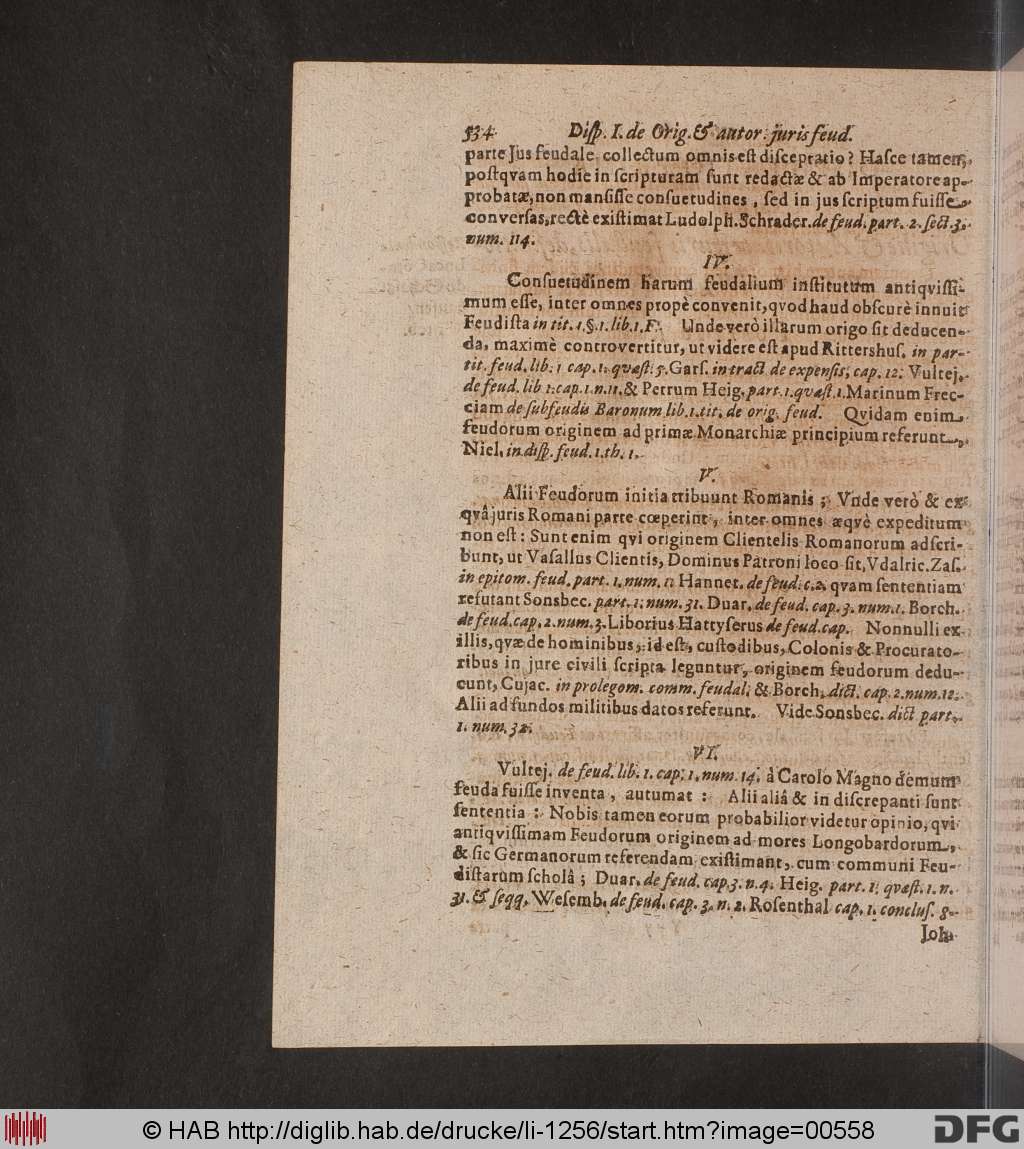 534 Disp. I. de Orig. & autor: juris feud.
parte Jus feudale collectum omnis est disceptatio? Hasce tamen,
postqvam hodie in scripturam sunt redactæ & ab Imperatore ap-
probatæ, non mansisse consuetudines, sed in jus scriptum fuisse
conversas, rectè existimat Ludolph. Schrader. de feud. part. 2. sect. 3.
num. 114.
IV.
Consuetudinem harum feudalium institutum antiqvissi-
mum esse, inter omnes propè convenit, qvod haud obscurè innuit
Feudista in tit. 1. §. 1. lib. 1. F. Unde verò illarum origo sit deducen-
da, maximè controvertitur, ut videre est apud Rittershus. in par-
tit. feud. lib. 1 cap. 1. quæst. 5. Gars. in tract de expensis, cap. 12. Vultej.
de feud. lib 1. cap. 1. n. 11. & Petrum Heig. part. 1. quæst. 1. Marinum Frec-
ciam de subfeudis Baronum lib. 1. tit. de orig. feud. Qvidam enim
feudorum originem ad primæ Monarchiæ principium referunt,
Niel. in disp. feud. 1. th. 1.
V.
Alii Feudorum initia tribuunt Romanis; Vnde verò & ex
qvâ juris Romani parte cœperint, inter omnes æqvè expeditum
non est: Sunt enim qvi originem Clientelis Romanorum adscri-
bunt, ut Vasallus Clientis, Dominus Patroni loco sit, Vdalric. Zas.
in epitom. feud. part. 1. num. 1. Hannet. de feud. c. 2. qvam sententiam
refutant Sonsbec. part. 1. num. 31. Duar. de feud. cap. 3. num. 1. Borch.
de feud. cap. 2. num. 3. Liborius Hattyserus de feud. cap. Nonnulli ex
illis, qvæ de hominibus, id est, custodibus, Colonis & Procurato-
ribus in jure civili scripta leguntur, originem feudorum dedu-
cunt, Cujac. in prolegom. comm. feudal. & Borch. dict. cap. 2. num. 12.
Alii ad fundos militibus datos referunt. Vide Sonsbec. dict part.
1. num. 32.
VI.
Vultej. de feud. lib. 1. cap. 1. num. 14. à Carolo Magno demum
feuda fuisse inventa, autumat: Alii aliâ & in discrepanti sunt
sententia: Nobis tamen eorum probabilior videtur opinio, qvi
antiqvissimam Feudorum originem ad mores Longobardorum,
& sic Germanorum referendam existimant, cum communi Feu-
distarum scholâ; Duar. de feud. cap. 3. n. 4. Heig. part. 1. quæst. 1. n.
31. & seqq. Wesemb. de feud. cap. 3. n. 2. Rosenthal cap. 1. conclus. 8.
Joh.
© HAB http://diglib.hab.de/drucke/li-1256/start.htm?image=00558
DFG